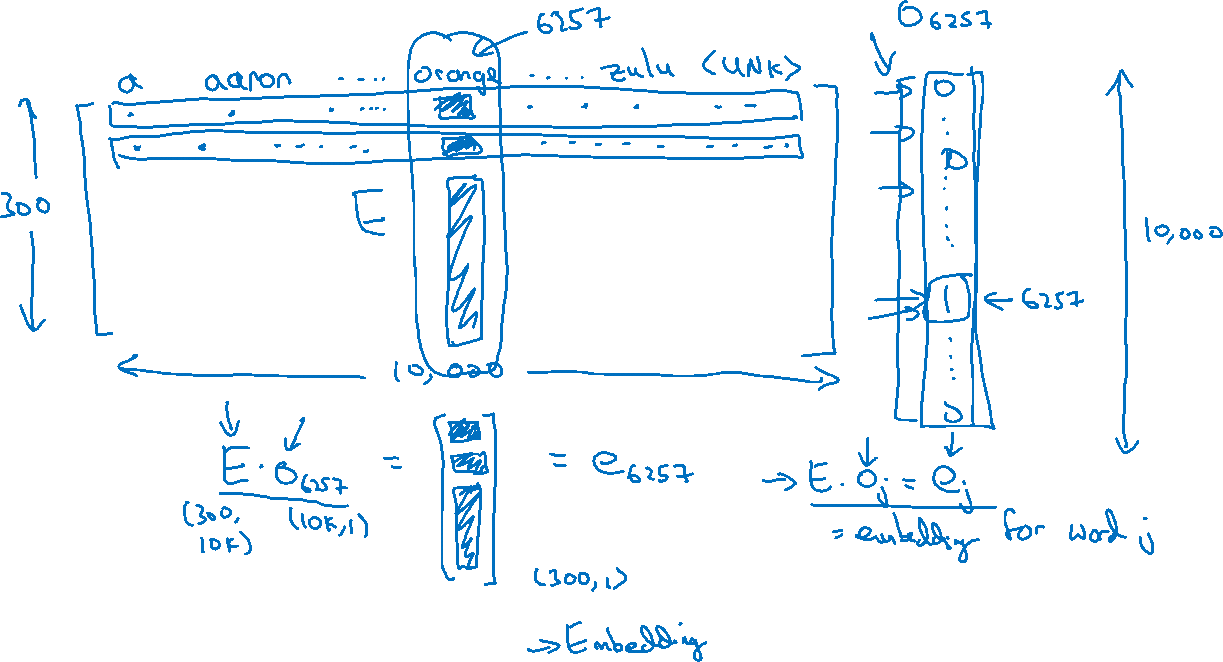 6257
O6257
a aaron ..... orange ..... zulu <UNK>
300
E
10,000
0
0
1
← 6257
0
10,000
E · O6257 = [ ] = e6257
(300, 10K) (10K,1)
(300,1)
→ E · Oj = ej
= embedding for word j
→ Embedding